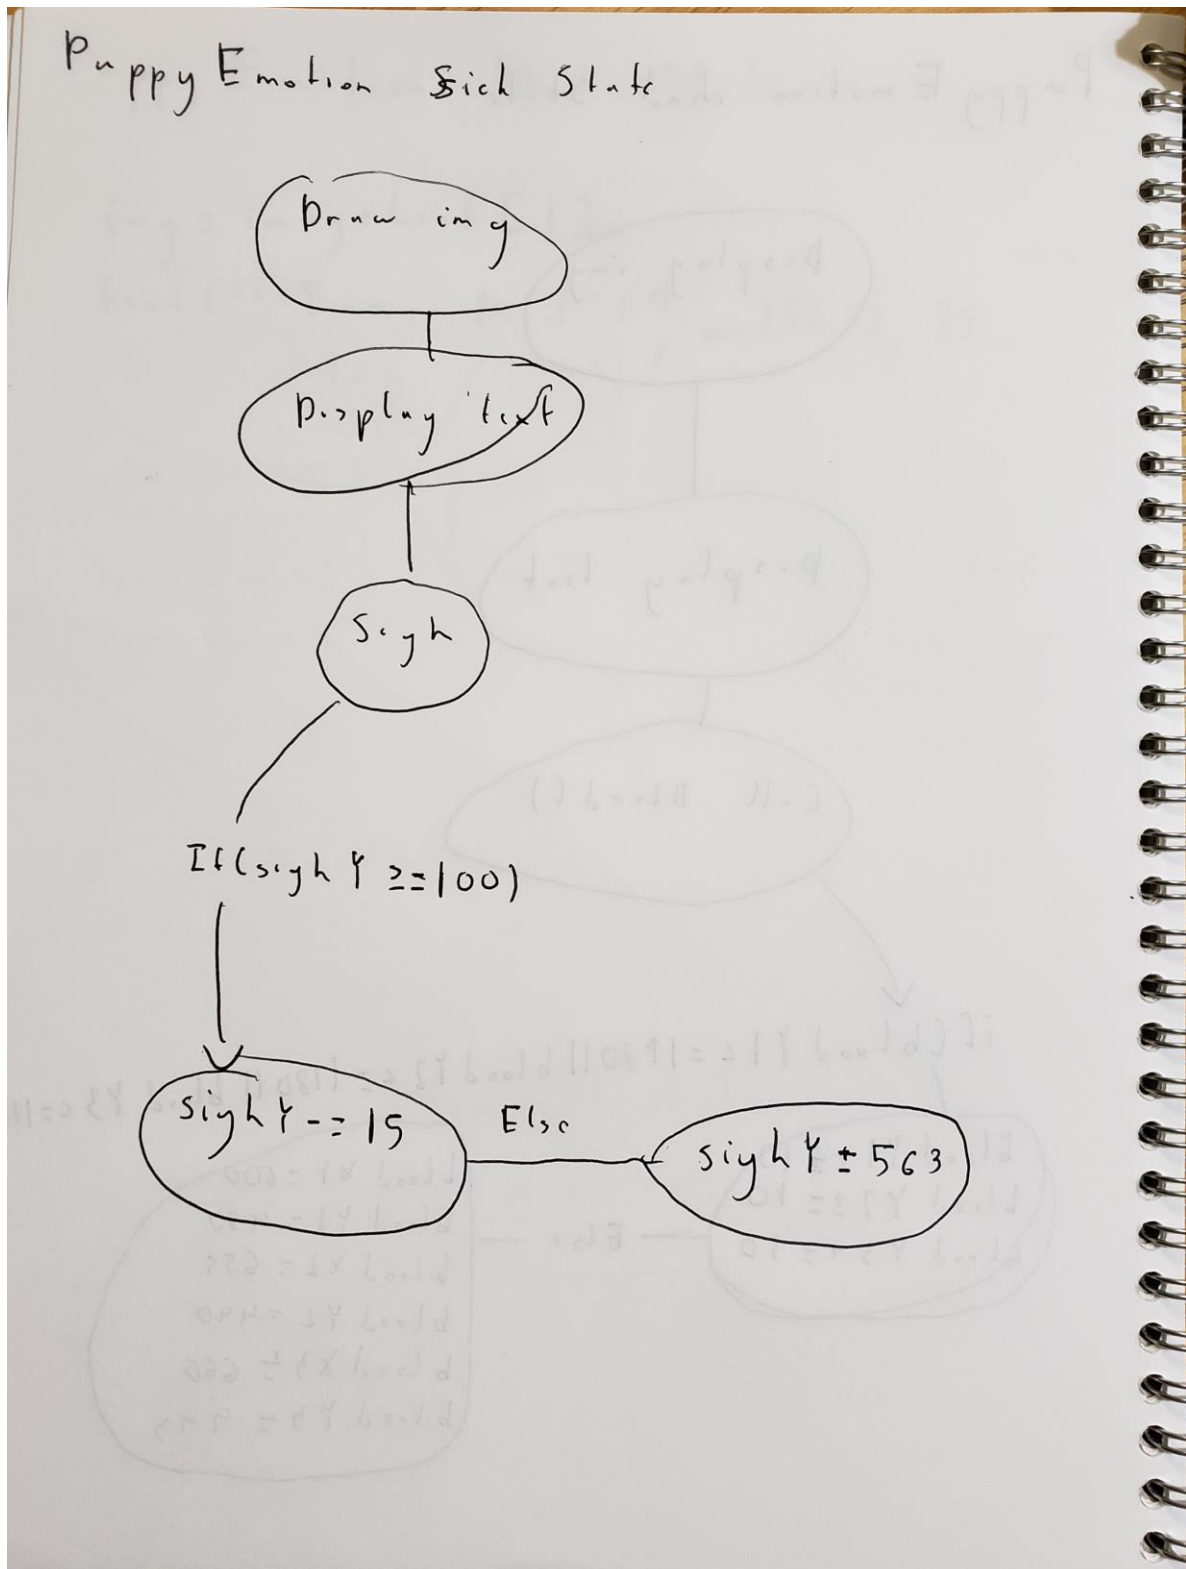 Puppy Emotion Sick State
Draw img
Display text
Sigh
If(sighY >=100)
sighY -= 15
Else
sighY ± 563